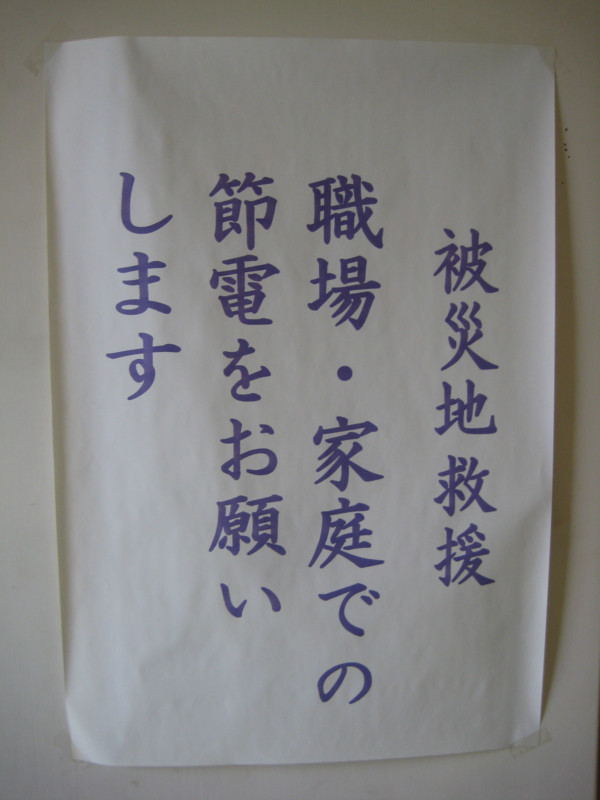 被災地救援
職場・家庭での
節電をお願い
します